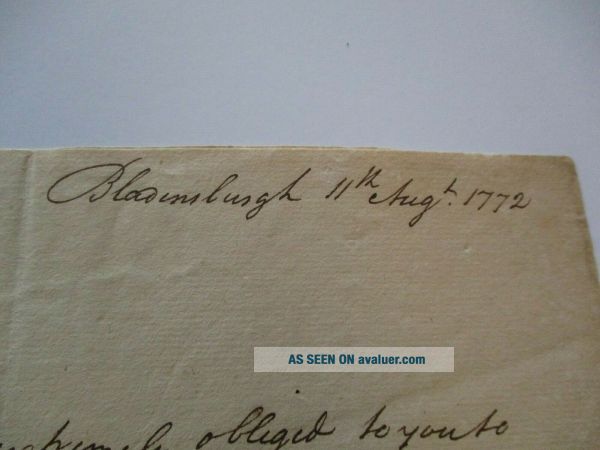 Bladensburgh 11th Augt. 1772
AS SEEN ON avaluer.com
extremely obliged to you to